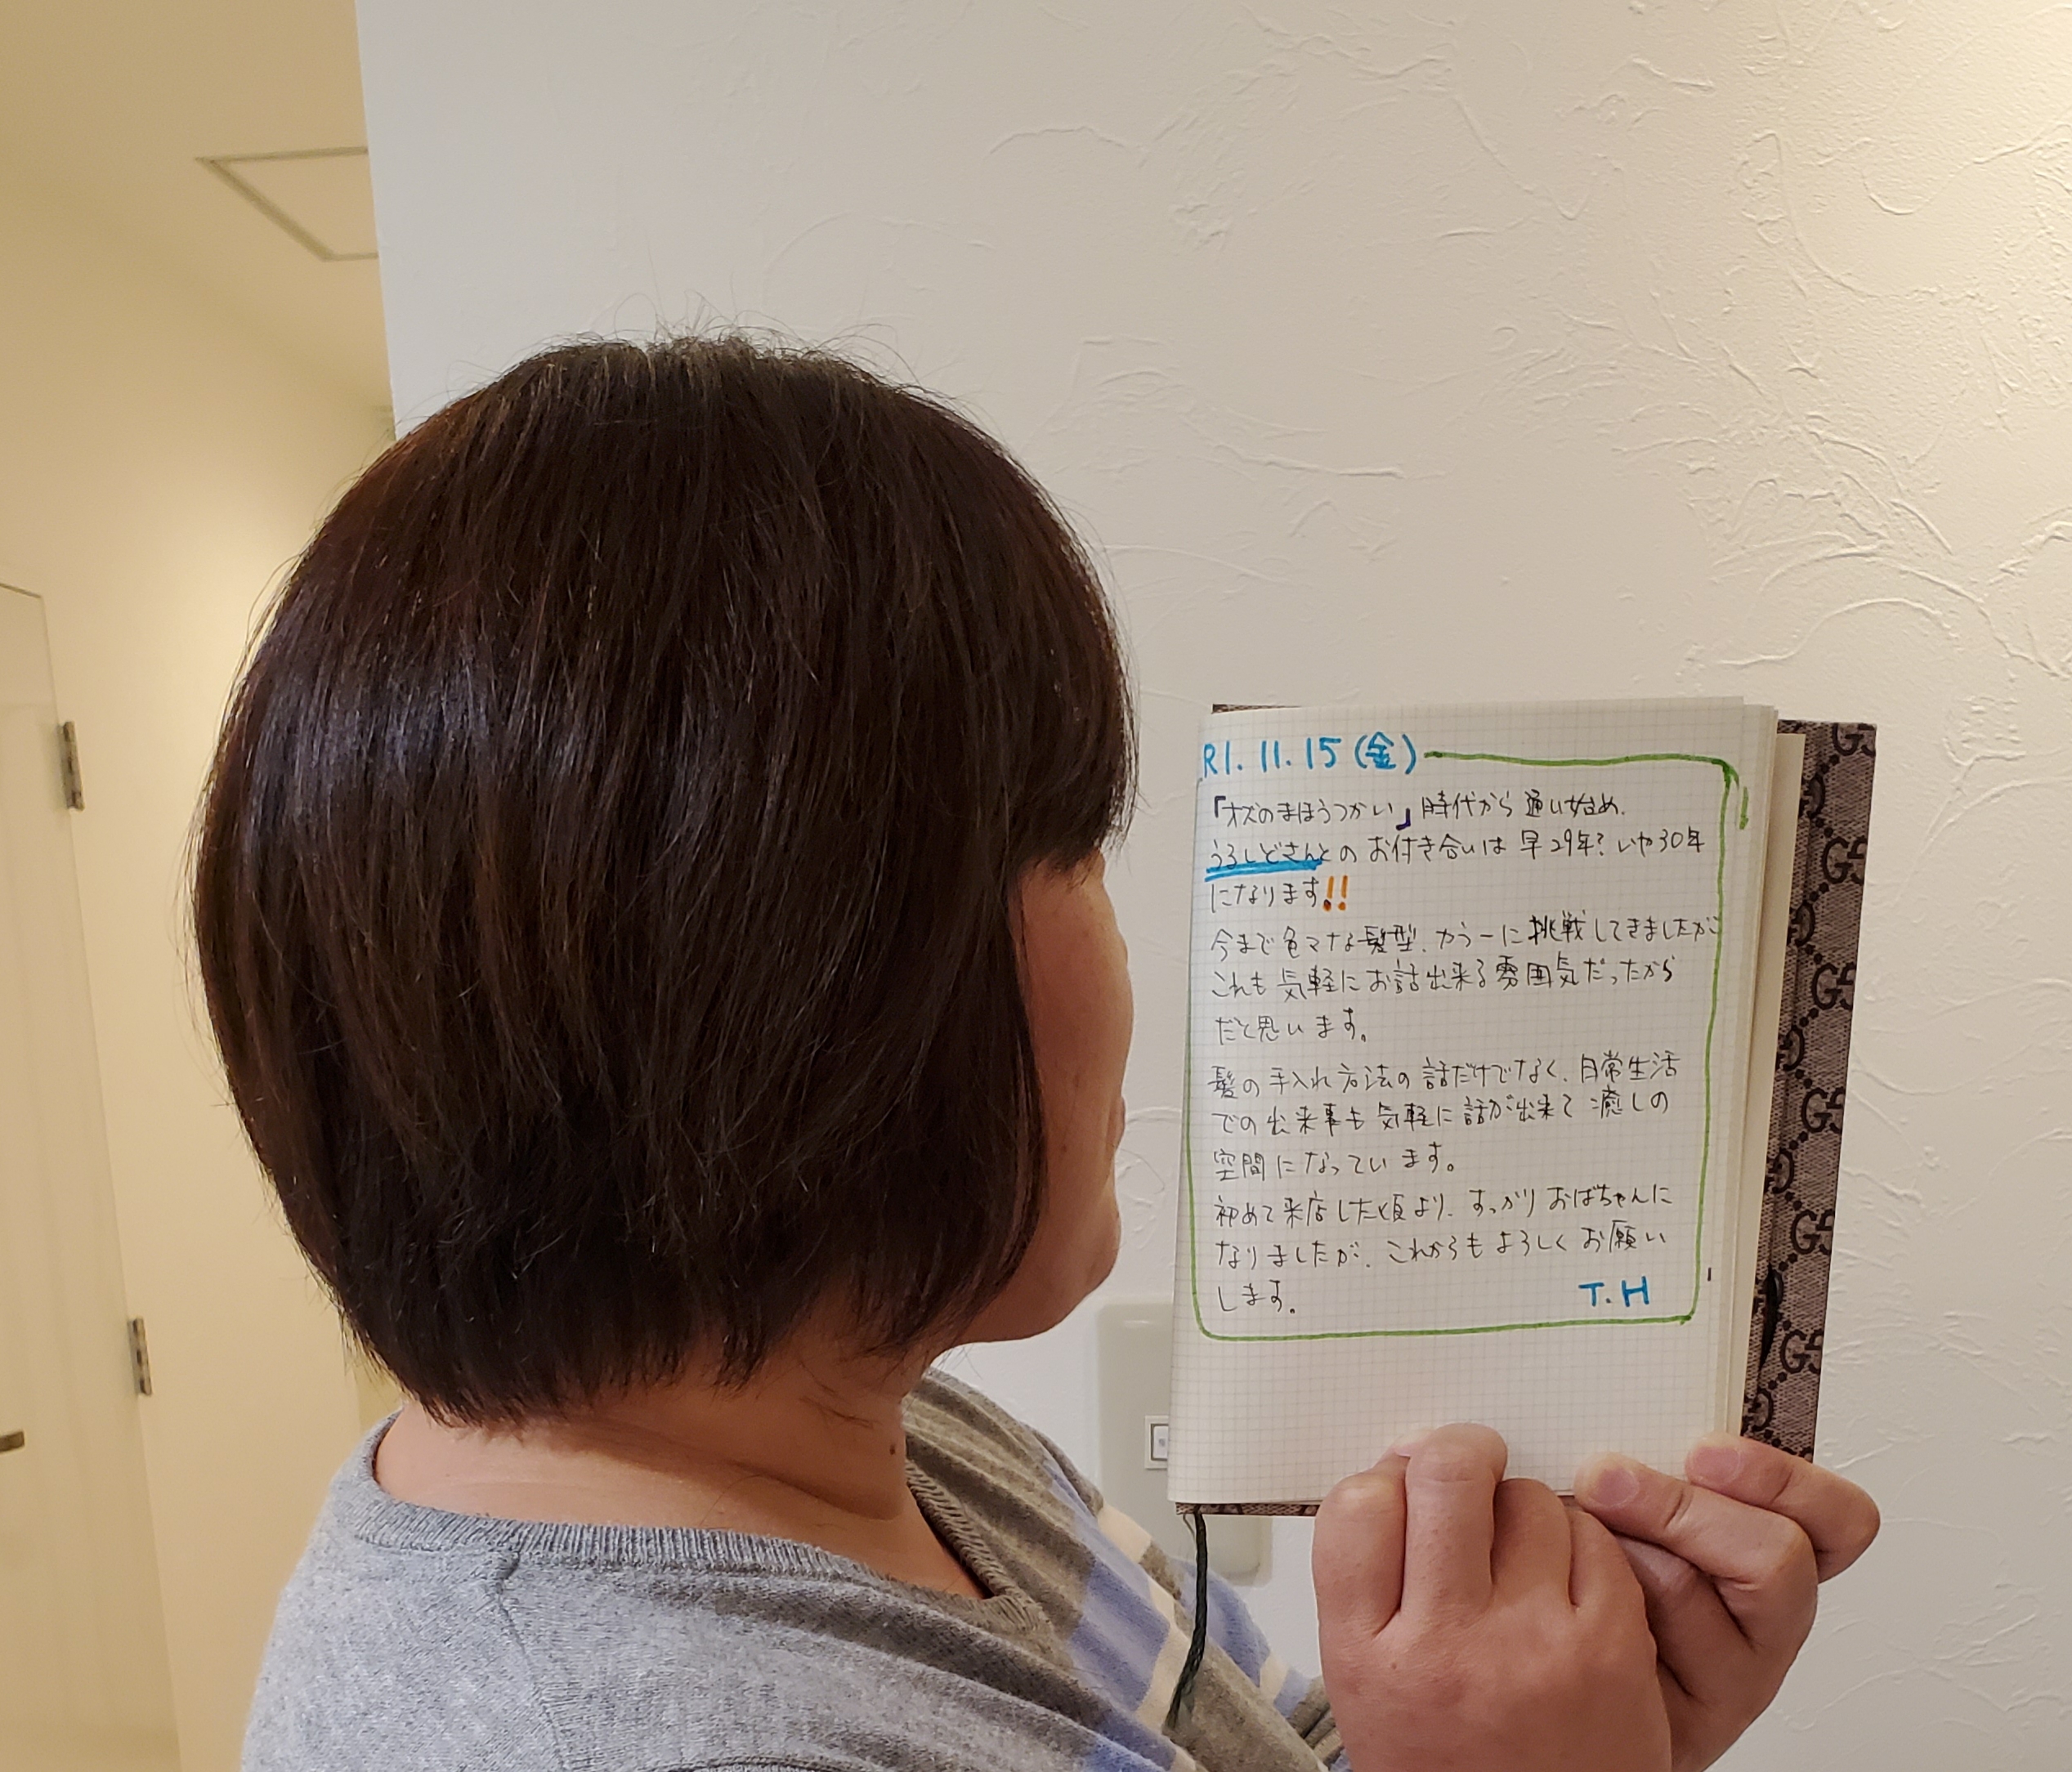 R1.11.15(金)
「オズのまほうつかい」時代から通い始め、
うるしどさんとのお付き合いは早29年？いや30年
になります!!
今まで色々な髪型、カラーに挑戦してきましたが
これも気軽にお話出来る雰囲気だったから
だと思います。
髪の手入れ方法の話だけでなく、日常生活
での出来事も気軽に話が出来て癒しの
空間になっています。
初めて来店した頃より、すっかりおばちゃんに
なりましたが、これからもよろしくお願い
します。
T.H